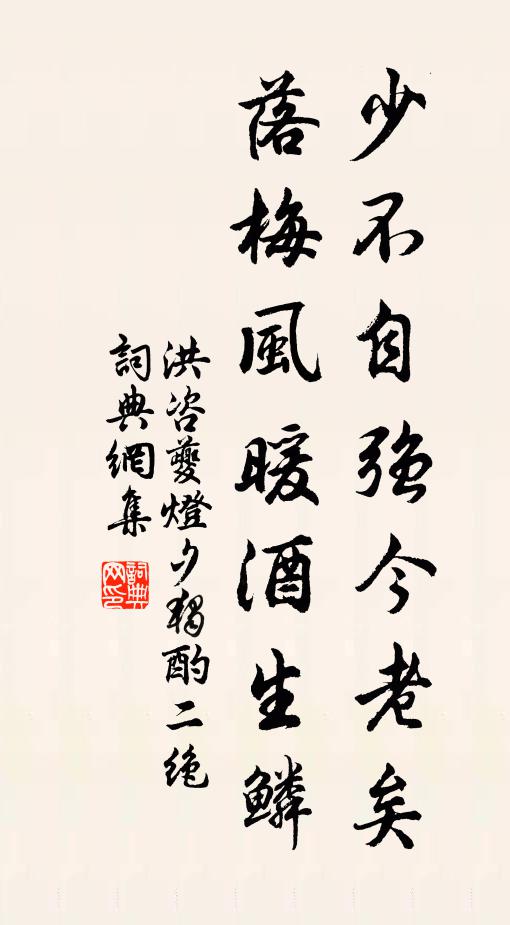 少不自強今老矣
落梅風暖酒生鱗
洪咨夔燈夕獨酌二絕
詞典網集
詞典网印